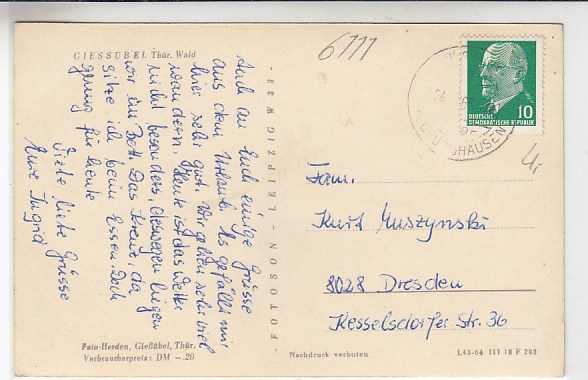 6777
GIESSÜBEL Thür. Wald
Auch an Euch einige Grüsse
aus dem Urlaub. Es gefällt mir
hier sehr gut. Wir gehen sehr viel
wandern. Heute ist das Wetter
nicht besonders, deswegen liegen
wir im Bett. Das Kreuz, da
sitze ich beim Essen. Doch
genug für heute
Viele liebe Grüsse
Eure Ingrid
Foto-Herden, Gießübel, Thür.
Verbraucherpreis: DM -.20
FOTOSONOR-LEIPZIG W 31
DEUTSCHE
DEMOKRATISCHE REPUBLIK
10
Fam.
Kurt Muszynski
8028 Dresden
Kesselsdorfer Str. 36
Nachdruck verboten
L43-64 III 18 F 282